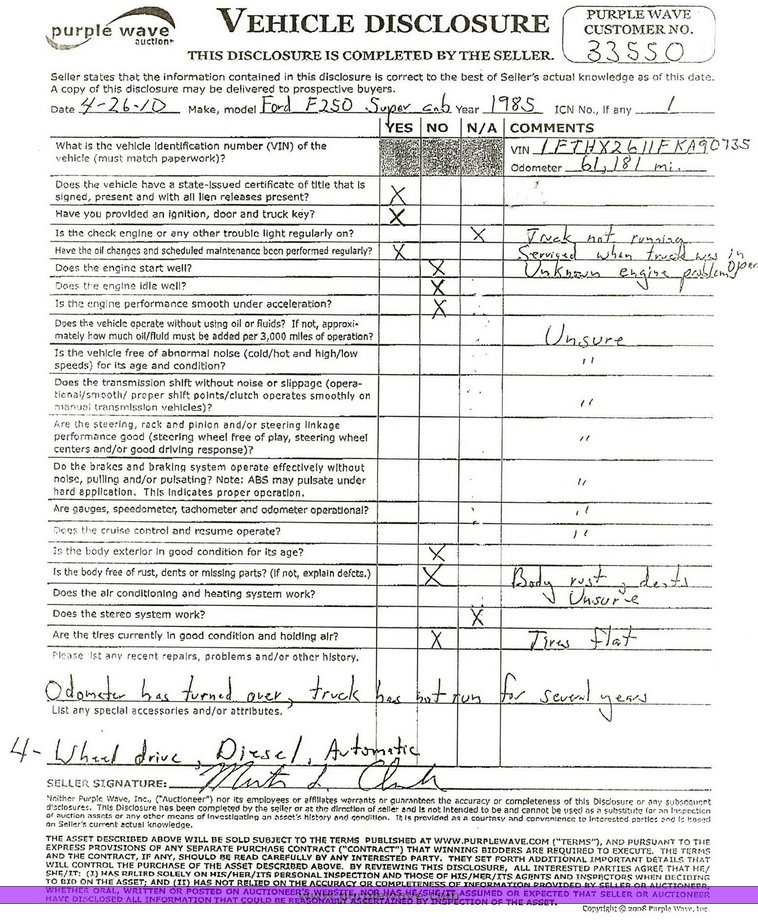 purple wave
auction
VEHICLE DISCLOSURE
THIS DISCLOSURE IS COMPLETED BY THE SELLER.
PURPLE WAVE
CUSTOMER NO.
33550
Seller states that the information contained in this disclosure is correct to the best of Seller's actual knowledge as of this date.
A copy of this disclosure may be delivered to prospective buyers.
Date 4-26-10 Make, model Ford F250 Super cab Year 1985 ICN No., if any 1
YES NO N/A COMMENTS
What is the vehicle identification number (VIN) of the
vehicle (must match paperwork)?
VIN 1FTHX2611FKA90735
Odometer 61,181 mi.
Does the vehicle have a state-issued certificate of title that is
signed, present and with all lien releases present? X
Have you provided an ignition, door and truck key? X
Is the check engine or any other trouble light regularly on? X Truck not running
Have the oil changes and scheduled maintenance been performed regularly? X Serviced when truck was in oper
Does the engine start well? X Unknown engine problems
Does the engine idle well? X
Is the engine performance smooth under acceleration? X
Does the vehicle operate without using oil or fluids? If not, approxi-
mately how much oil/fluid must be added per 3,000 miles of operation? Unsure
Is the vehicle free of abnormal noise (cold/hot and high/low
speeds) for its age and condition? "
Does the transmission shift without noise or slippage (opera-
tional/smooth/ proper shift points/clutch operates smoothly on
manual transmission vehicles)? "
Are the steering, rack and pinion and/or steering linkage
performance good (steering wheel free of play, steering wheel
centers and/or good driving response)? "
Do the brakes and braking system operate effectively without
noise, pulling and/or pulsating? Note: ABS may pulsate under
hard application. This indicates proper operation. "
Are gauges, speedometer, tachometer and odometer operational? "
Does the cruise control and resume operate? "
Is the body exterior in good condition for its age? X
Is the body free of rust, dents or missing parts? (if not, explain defcts.) X Body rust, dents
Does the air conditioning and heating system work? Unsure
Does the stereo system work? X
Are the tires currently in good condition and holding air? X Tires flat
Please list any recent repairs, problems and/or other history.
Odometer has turned over, truck has not run for several years
List any special accessories and/or attributes.
4-Wheel drive, Diesel, Automatic
SELLER SIGNATURE:
Neither Purple Wave, Inc. ("Auctioneer") nor its employees or affiliates warrants nor guarantees the accuracy or completeness of this Disclosure or any subsequent
disclosures. This Disclosure has been completed by the seller or at the direction of seller and is not intended to be and cannot be used as a substitute for an inspection
of auction assets or any other means of investigating an asset's history and condition. It is provided as a courtesy and convenience to interested parties and is based
on Seller's current actual knowledge.
THE ASSET DESCRIBED ABOVE WILL BE SOLD SUBJECT TO THE TERMS PUBLISHED AT WWW.PURPLEWAVE.COM ("TERMS"), AND PURSUANT TO THE
EXPRESS PROVISIONS OF ANY SEPARATE PURCHASE CONTRACT ("CONTRACT") THAT WINNING BIDDERS ARE REQUIRED TO EXECUTE. THE TERMS
AND THE CONTRACT, IF ANY, SHOULD BE READ CAREFULLY BY ANY INTERESTED PARTY. THEY SET FORTH ADDITIONAL IMPORTANT DETAILS THAT
WILL CONTROL THE PURCHASE OF THE ASSET DESCRIBED ABOVE. BY REVIEWING THIS DISCLOSURE, ALL INTERESTED PARTIES AGREE THAT HE/
SHE/IT: (I) HAS RELIED SOLELY ON HIS/HER/ITS PERSONAL INSPECTION AND THOSE OF HIS/HER/ITS AGENTS AND INSPECTORS WHEN DECIDING
TO BID ON THE ASSET; AND (II) HAS NOT RELIED ON THE ACCURACY OR COMPLETENESS OF INFORMATION PROVIDED BY SELLER OR AUCTIONEER,
WHETHER ORAL, WRITTEN OR POSTED ON AUCTIONEER'S WEBSITE, NOR HAS HE/SHE/IT ASSUMED OR EXPECTED THAT SELLER OR AUCTIONEER
HAVE DISCLOSED ALL INFORMATION THAT COULD BE REASONABLY ASCERTAINED BY INSPECTION OF THE ASSET.
Copyright © 2008 Purple Wave, Inc.